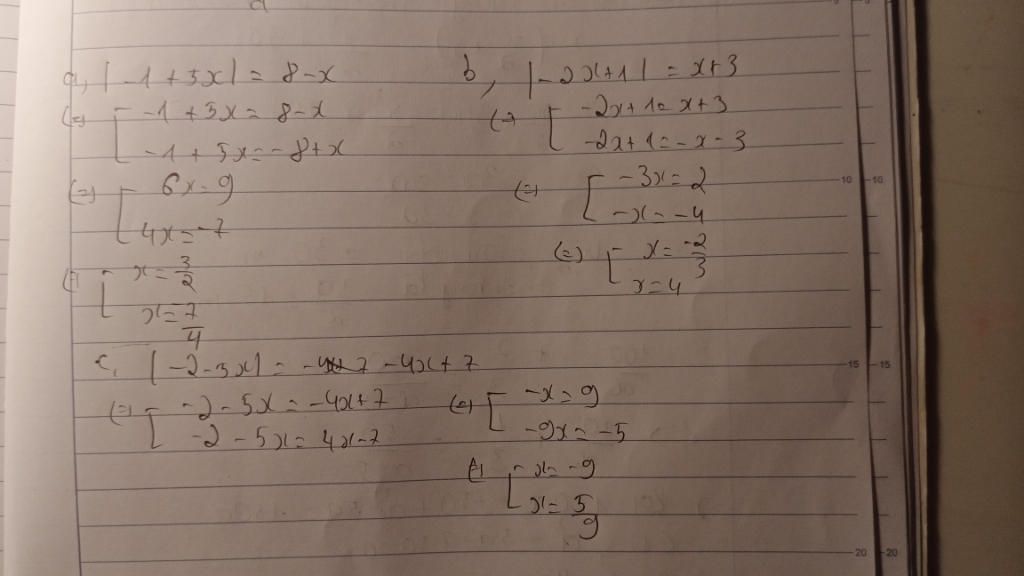 a, |-1+5x| = 8-x
(=) [ -1+5x = 8-x
-1+5x = -8+x
(=) [ 6x = 9
4x = -7
(=) [ x = 3/2
x = 7/4
b, |-2x+1| = x+3
(=) [ -2x+1 = x+3
-2x+1 = -x-3
(=) [ -3x = 2
-x = -4
(=) [ x = -2/3
x = 4
c, |-2-5x| = -4x+7
(=) [ -2-5x = -4x+7
-2-5x = 4x-7
(=) [ -x = 9
-9x = -5
(=) [ x = -9
x = 5/9
10 10
15 15
20 20